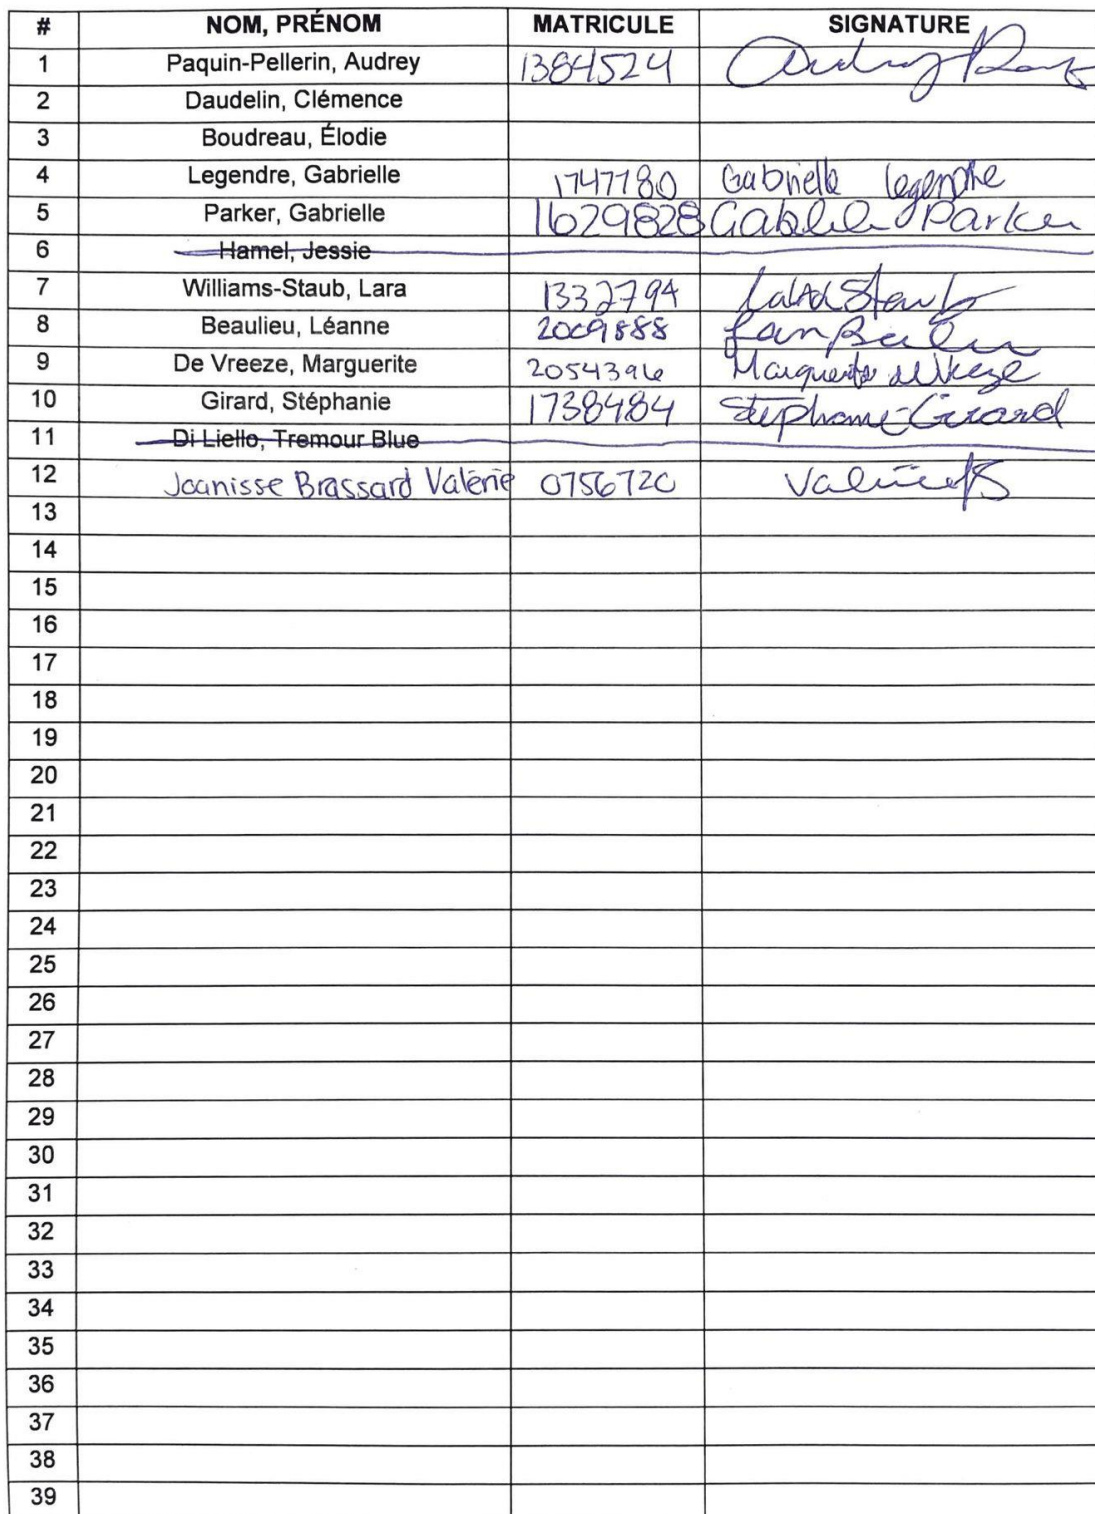 # NOM, PRÉNOM MATRICULE SIGNATURE
1 Paquin-Pellerin, Audrey 1384524 Audrey
2 Daudelin, Clémence
3 Boudreau, Élodie
4 Legendre, Gabrielle 1747780 Gabrielle Legendre
5 Parker, Gabrielle 1629828 Gabrielle Parker
6 Hamel, Jessie
7 Williams-Staub, Lara 1332794 Staub
8 Beaulieu, Léanne 2009888
9 De Vreeze, Marguerite 2054396 Marguerite de Vreeze
10 Girard, Stéphanie 1738484 Stephanie Girard
11 Di Liello, Tremour Blue
12 Joanisse Brassard Valérie 0756720
13
14
15
16
17
18
19
20
21
22
23
24
25
26
27
28
29
30
31
32
33
34
35
36
37
38
39